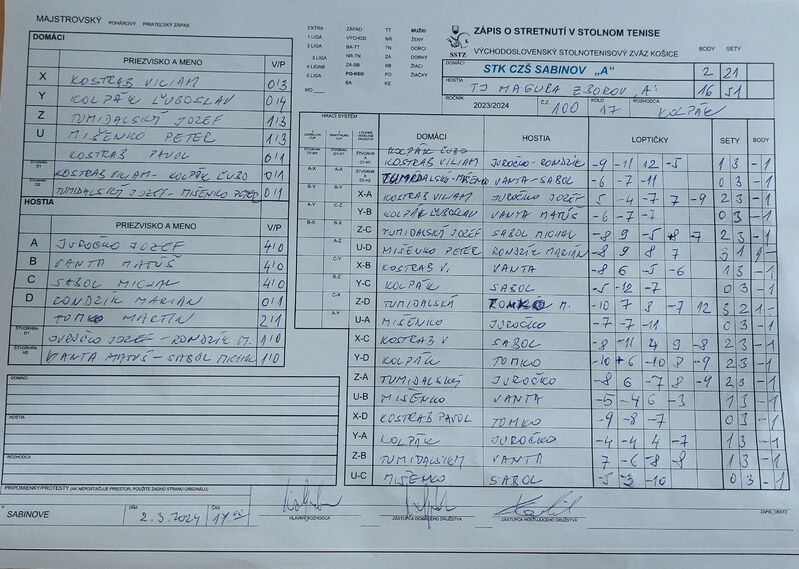 MAJSTROVSKÝ POHÁROVÝ PRIATEĽSKÝ ZÁPAS
DOMÁCI
PRIEZVISKO A MENO V/P
X KOSTRAB VILIAM 0/3
Y KOLPÁK ĽUBOSLAV 0/4
Z TUMIDALSKÝ JOZEF 1/3
U MIŠENKO PETER 1/3
KOSTRAB PAVOL 0/1
ŠTVORHRA D1 KOSTRAB VILIAM - KOLPÁK ĽUBO 0/1
ŠTVORHRA D2 TUMIDALSKÝ JOZEF - MIŠENKO PETER 0/1
HOSTIA
PRIEZVISKO A MENO V/P
A JUROČKO JOZEF 4/0
B VANTA MATÚŠ 4/0
C SABOL MICHAL 4/0
D RONDZIK MARIAN 0/1
TOMKO MARTIN 2/1
ŠTVORHRA JUROČKO JOZEF - RONDZIK M. 1/0
ŠTVORHRA H2 VANTA MATÚŠ - SABOL MICHAL 1/0
DOMÁCI
HOSTIA
ROZHODCA
PRIPOMIENKY/PROTESTY (AK NEPOSTAČUJE PRIESTOR, POUŽITE ZADNÚ STRANU ORIGINÁLU)
V SABINOVE DŇA 2.3.2024 ČAS 17 00
HLAVNÝ ROZHODCA
ZÁSTUPCA DOMÁCEHO DRUŽSTVA
ZÁSTUPCA HOSŤUJÚCEHO DRUŽSTVA
ZAPIS_OBSTZ
EXTRA ZÁPAD TT MUŽI
1.LIGA VÝCHOD NR ŽENY
2.LIGA BA-TT TN DORCI
3.LIGA NR-TN ZA DORKY
4.LIGA ZA-SB BB ŽIACI
5.LIGA PO-KE PO ŽIAČKY
MO BA KE
SSTZ
ZÁPIS O STRETNUTÍ V STOLNOM TENISE
VÝCHODOSLOVENSKÝ STOLNOTENISOVÝ ZVÄZ KOŠICE
BODY SETY
DOMÁCI STK CZŠ SABINOV „A" 2 21
HOSTIA TJ MAGURA ZBOROV „A" 16 51
ROČNÍK 2023/2024 Č.Z. 100 KOLO 17 ROZHODCA KOLPÁK
HRACÍ SYSTÉM
DOMÁCI HOSTIA LOPTIČKY SETY BODY
KOLPÁK ĽUBO
KOSTRAB VILIAM JUROČKO - RONDZIK -9 -11 12 -5 1 3 -1
TUMIDALSKÝ - MIŠENKO VANTA - SABOL -6 -7 -11 0 3 -1
X-A KOSTRAB VILIAM JUROČKO JOZEF 5 -4 -7 7 -9 2 3 -1
Y-B KOLPÁK ĽUBOSLAV VANTA MATÚŠ -6 -7 -7 0 3 -1
Z-C TUMIDALSKÝ JOZEF SABOL MICHAL -8 9 -5 8 -7 2 3 -1
U-D MIŠENKO PETER RONDZIK MARIÁN -8 9 8 7 3 1 1 -
X-B KOSTRAB V. VANTA -8 6 -5 -6 1 3 -1
Y-C KOLPÁK SABOL -5 -12 -7 0 3 -1
Z-D TUMIDALSKÝ TOMKO M. -10 7 8 -7 12 3 2 1 -
U-A MIŠENKO JUROČKO -7 -7 -11 0 3 -1
X-C KOSTRAB V SABOL -8 -11 4 9 -8 2 3 -1
Y-D KOLPÁK TOMKO -10 6 -10 8 -9 2 3 -1
Z-A TUMIDALSKÝ JUROČKO -8 6 -7 8 -9 2 3 -1
U-B MIŠENKO VANTA -5 -4 6 -3 1 3 -1
X-D KOSTRAB PAVOL TOMKO -9 -8 -7 0 3 -1
Y-A KOLPÁK JUROČKO -4 -4 4 -7 1 3 -1
Z-B TUMIDALSKÝ VANTA 7 -6 -8 -8 1 3 -1
U-C MIŠENKO SABOL -5 -3 -10 0 3 -1